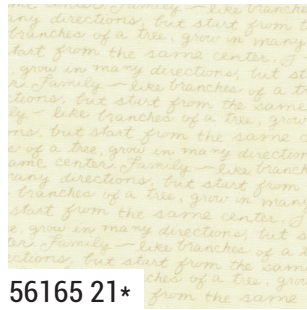 same center. Family – like branche
any directions, but start from t
branches of a tree, grow in many
tart from the same center. F
, grow in many directions, but st
r. Family – like branches of a tr
ctions, but start from the same
ly – like branches of a tree, grow
ns, but start from the same c
s of a tree, grow in many direction
ame center. Family – like branch
any directions, but start from
branches of a tree, grow in many
start from the same center. F
e, grow in many directions, but s
ter. Family – like branches of a t
ections, but start from the sam
ches of a tree, grow
56165 21* from the same